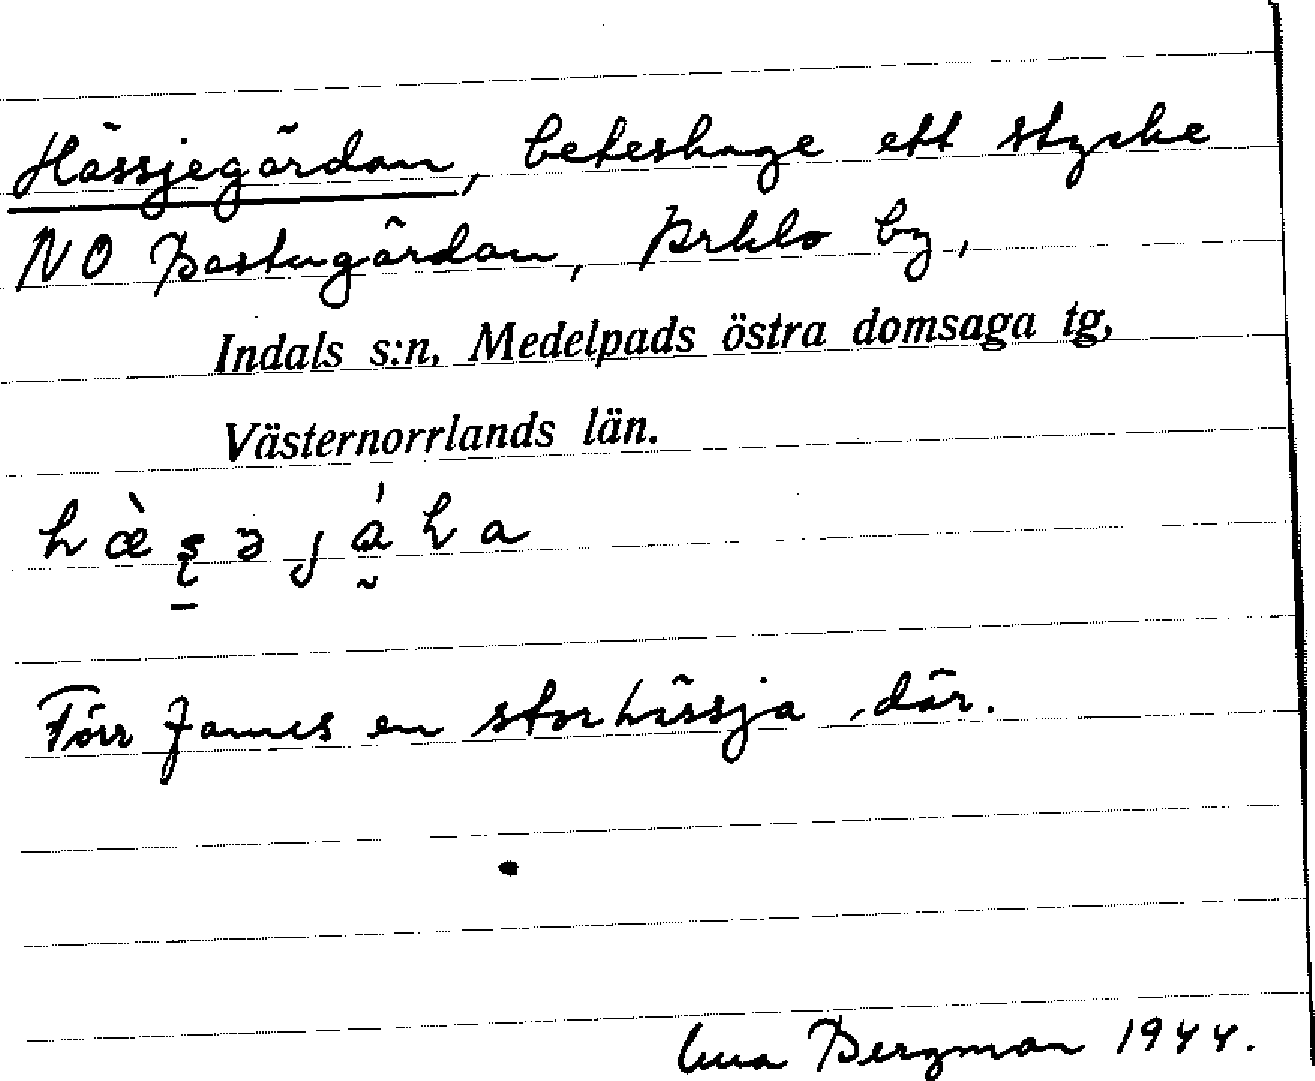 Hässjegärdan, beteshage ett stycke
NO Bastugärdan, Prklo by,
Indals s:n, Medelpads östra domsaga tg,
Västernorrlands län.
Förr fanns en storhässja där.
Bergman 1944.